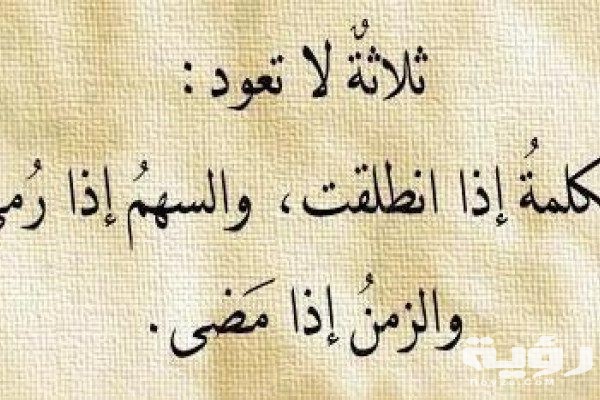 ثلاثةٌ لا تعود :
كلمةُ إذا انطلقت، والسهمُ إذا رُمي
والزمنُ إذا مَضى.
رؤية